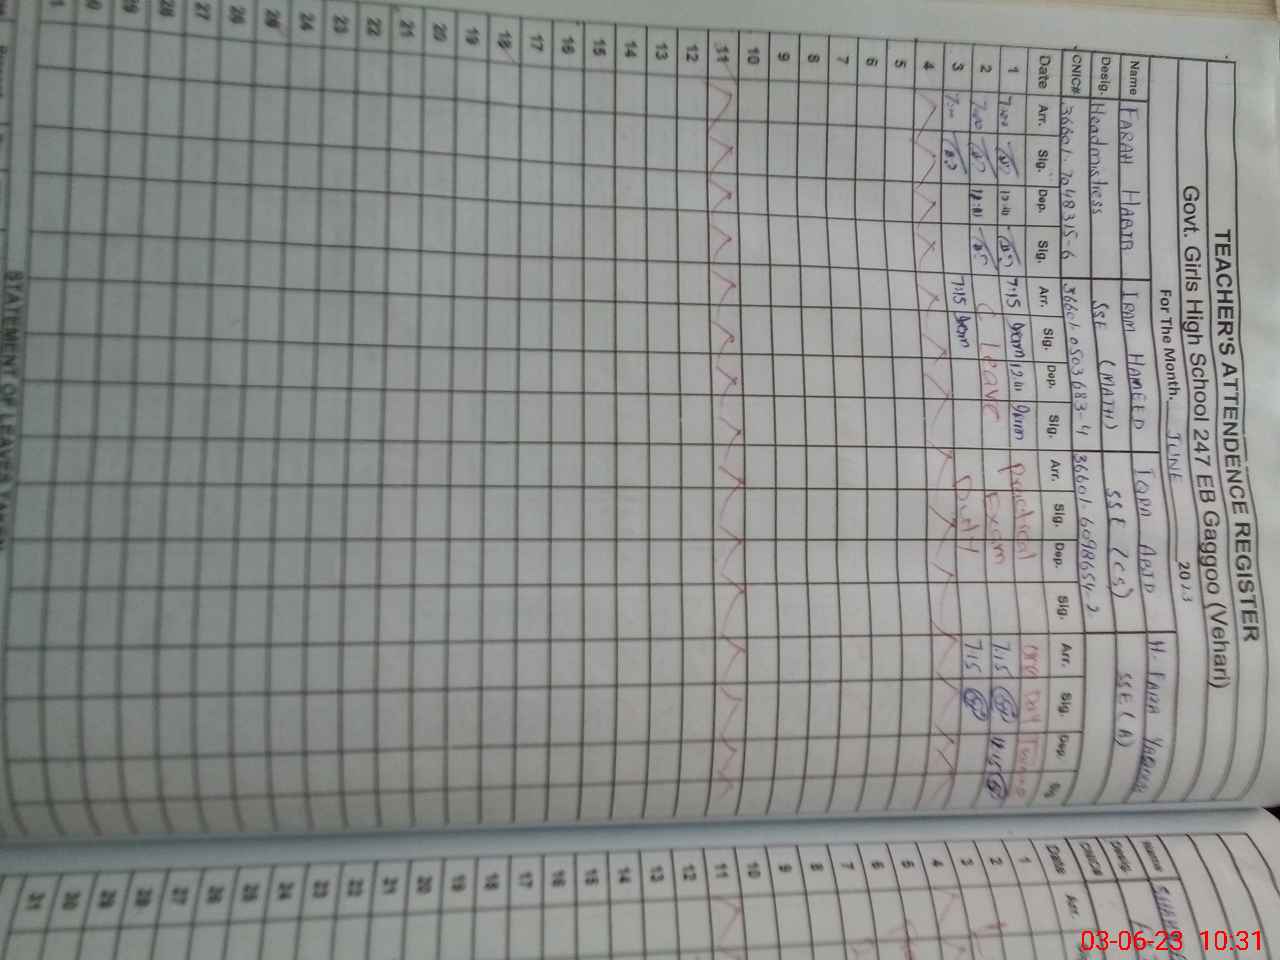 TEACHER'S ATTENDENCE REGISTER
Govt. Girls High School 247 EB Gaggoo (Vehari)
For The Month. JUNE 2023
Name FARAH HABIB IRAM HAMEED IQRA ABID H. FAIZA
Desig. Headmistress SSE (MATH) SSE (CS) SSE (A)
CNIC# 36601-7048315-6 36601-0503683-4 36601-6098654-2
Date Arr. Sig. Dep. Sig. Arr. Sig. Dep. Sig. Arr. Sig. Dep. Sig. Arr. Sig. Dep. Sig.
1 7:00 7:15 Iram 12:01 Iram Practical one Day
2 7:00 C Leave Exam 7:15 12:15
3 7:00 7:15 Iram Duty 7:15
4
5
6
7
8
9
10
11
12
13
14
15
16
17
18
19
20
21
22
23
24
25
26
27
28
29
30
31
STATEMENT OF LEAVES TAKEN
Name
Desig.
CNIC#
Date Arr.
1
2
3
4
5
6
7
8
9
10
11
12
13
14
15
16
17
18
19
20
21
22
23
24
25
26
27
28
29
30
31
03-06-23 10:31